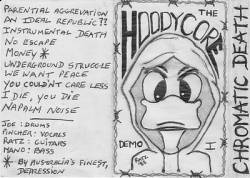 PARENTIAL AGGREVATION
AN IDEAL REPUBLIC??
INSTRUMENTAL DEATH
NO ESCAPE
MONEY *
UNDERGROUND STRUGGLE
WE WANT PEACE
YOU COULDN'T CARE LESS
I DIE, YOU DIE
NAPALM NOISE
JOE: DRUMS
: VOCALS
RATZ: GUITARS
MANO: BASS
* BY AUSTRALIA'S FINEST,
DEPRESSION
THE
HOODYCORE
DEMO
I
CHROMATIC DEATH